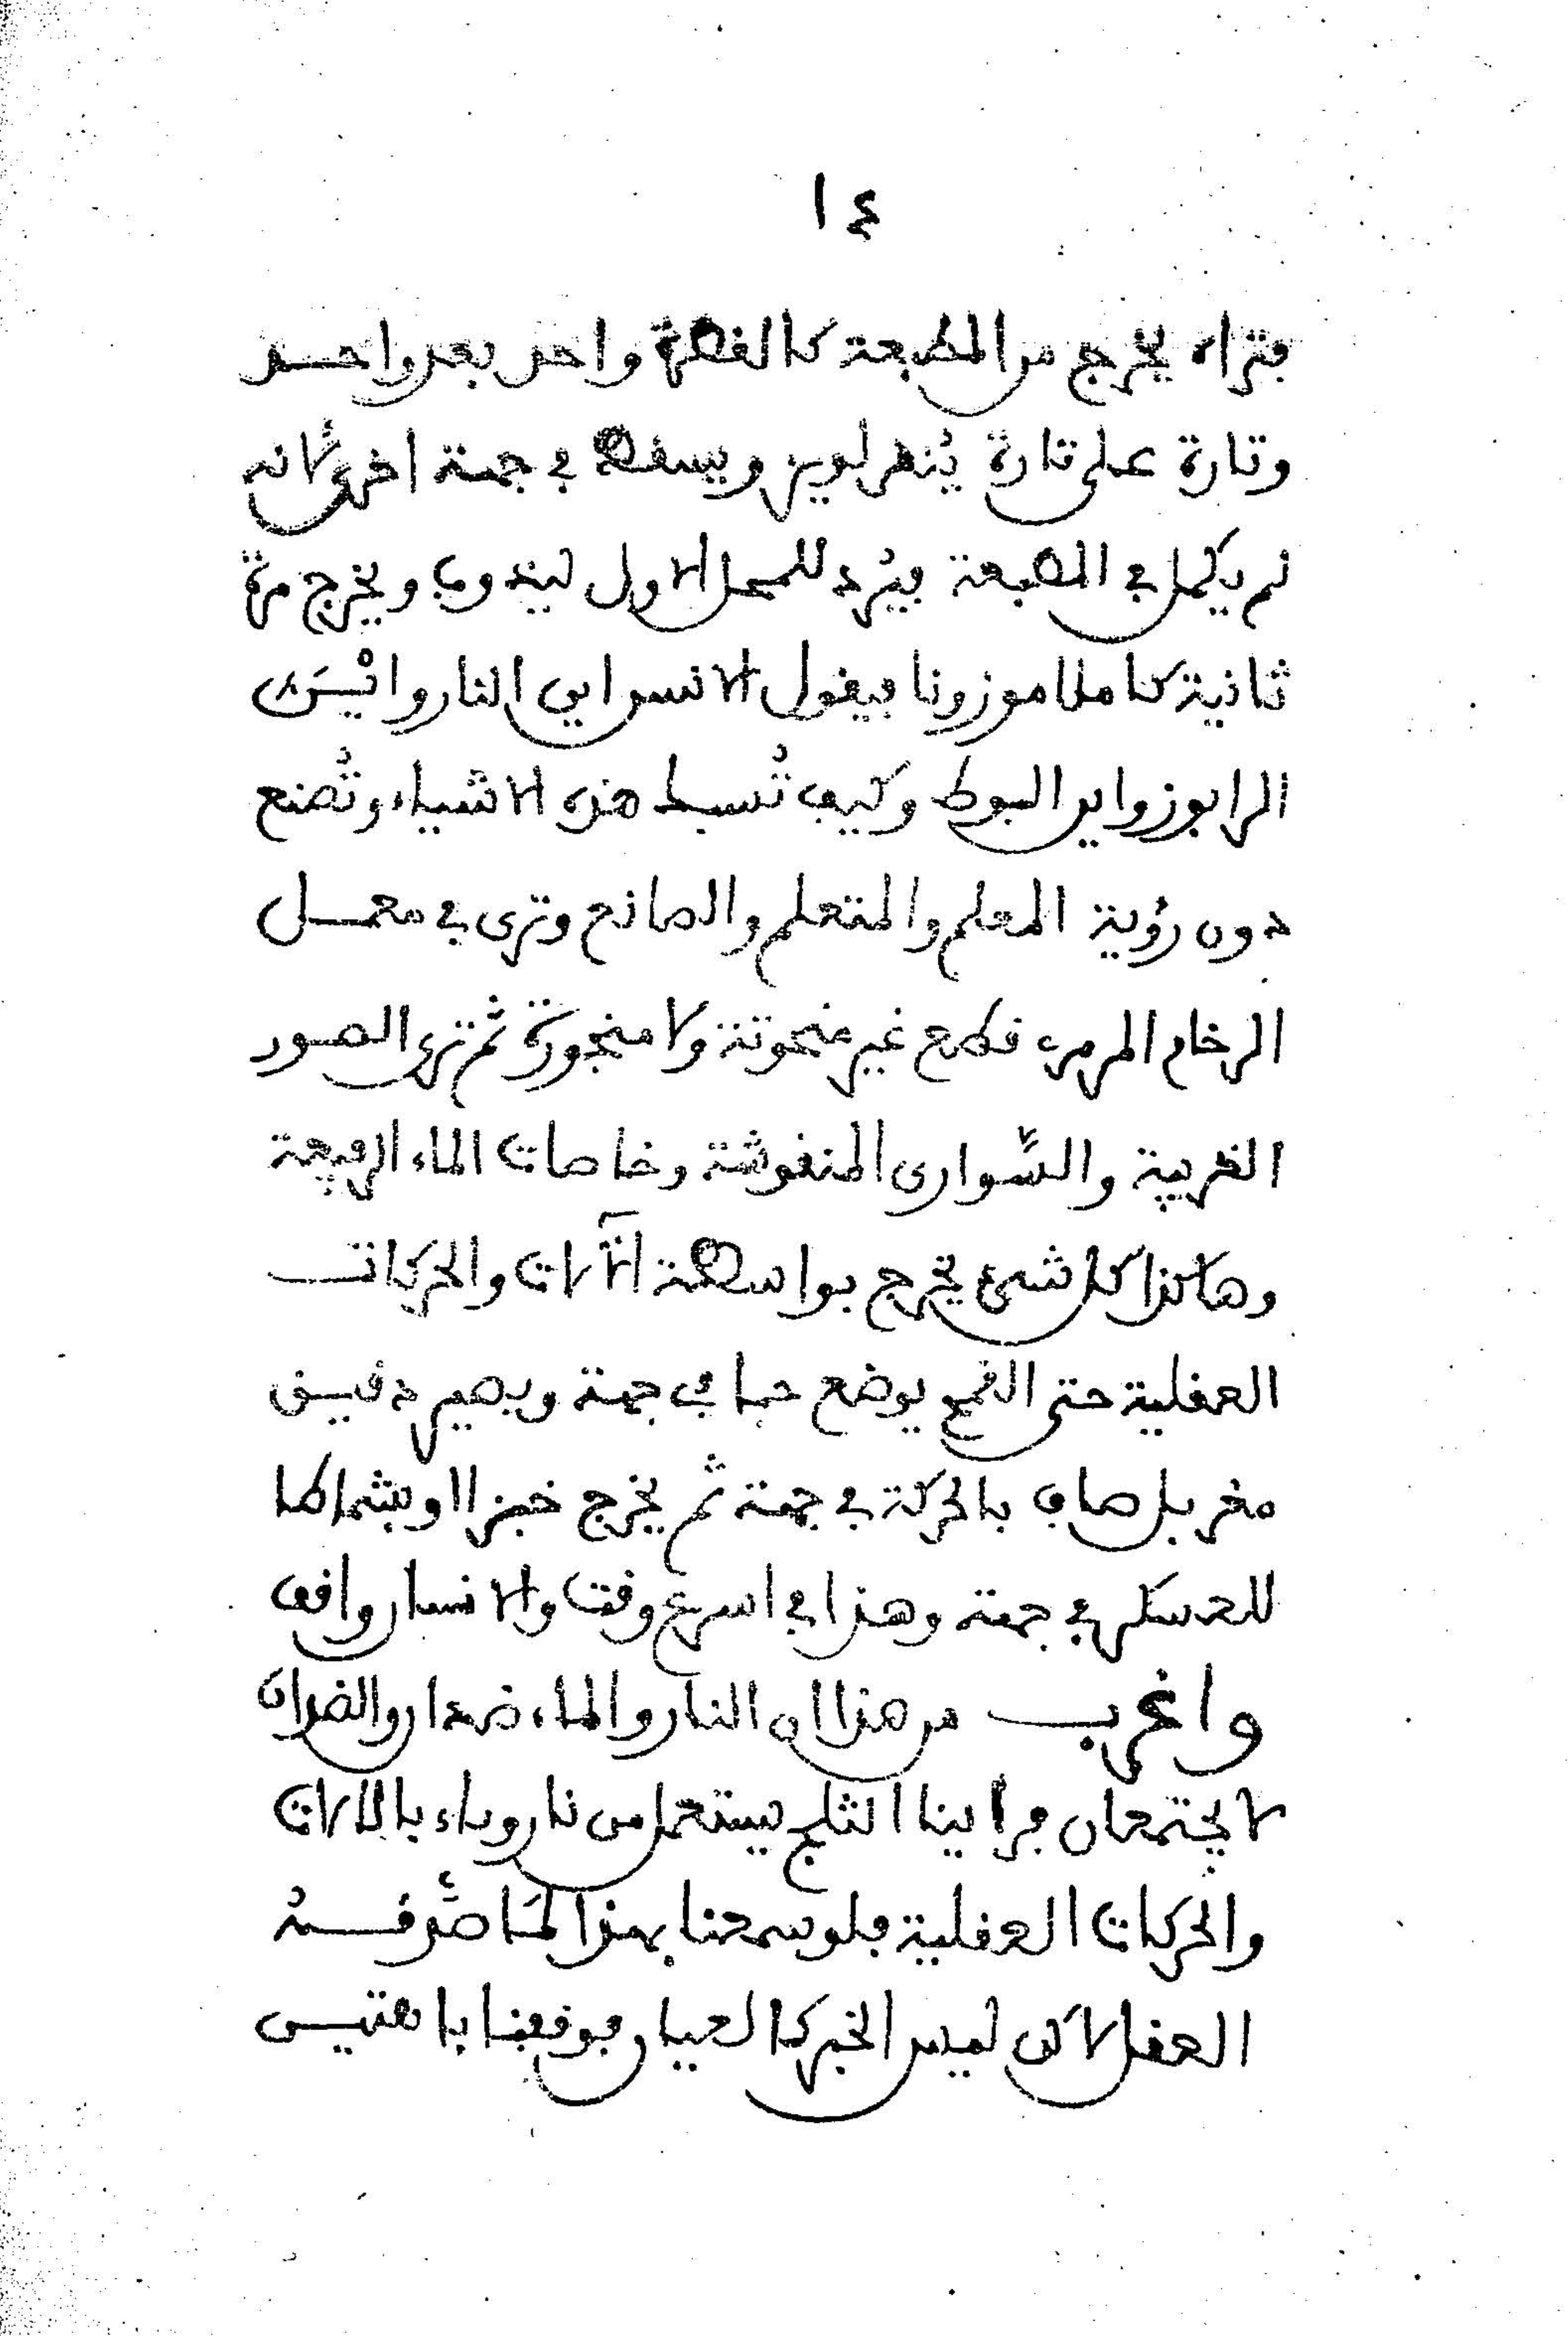 ١٤
فتراه يخرج من المطبعة كالفطرة واحد بعد واحد
وتارة على تارة يُنهر لويز ويسقط في جهة اخرى لانه
لم يكمل في المطبعة فيُرد للمحل الاول ليندوب ويخرج مرة
ثانية كاملا موزونا فيقول الانسان اين النار وايْسَ
الرابوز واين البوط وكيف تُسبط هذه الاشياء وتُصنع
دون رؤية المعلم والمتعلم والصانع وترى في معمل
الرخام المرمر قطع غير منحوتة ولا منجورة ثم ترى الصور
الغريبة والسَّوارى المنقوشة وخاصات الماء الرفيعة
وهاكذا كل شىء يخرج بواسطة الآلات والحركات
العقلية حتى القمح يوضع حبا في جهة ويصير دقيق
مغربل صاف بالحركة في جهة ثم يخرج خبزا او بشماطا
للعسكر في جهة وهذا في اسرع وقت والانسان واقف
واغرب من هذا ان النار والماء ضدان والضدان
لا يجتمعان فراينا الثلج يستعمل من نار وماء بالالات
والحركات العقلية فلو سمعنا بهذا لمَا صدَّقـــهُ
العقل لاكن ليس الخبر كالعيان فوقفنا باهتيـن